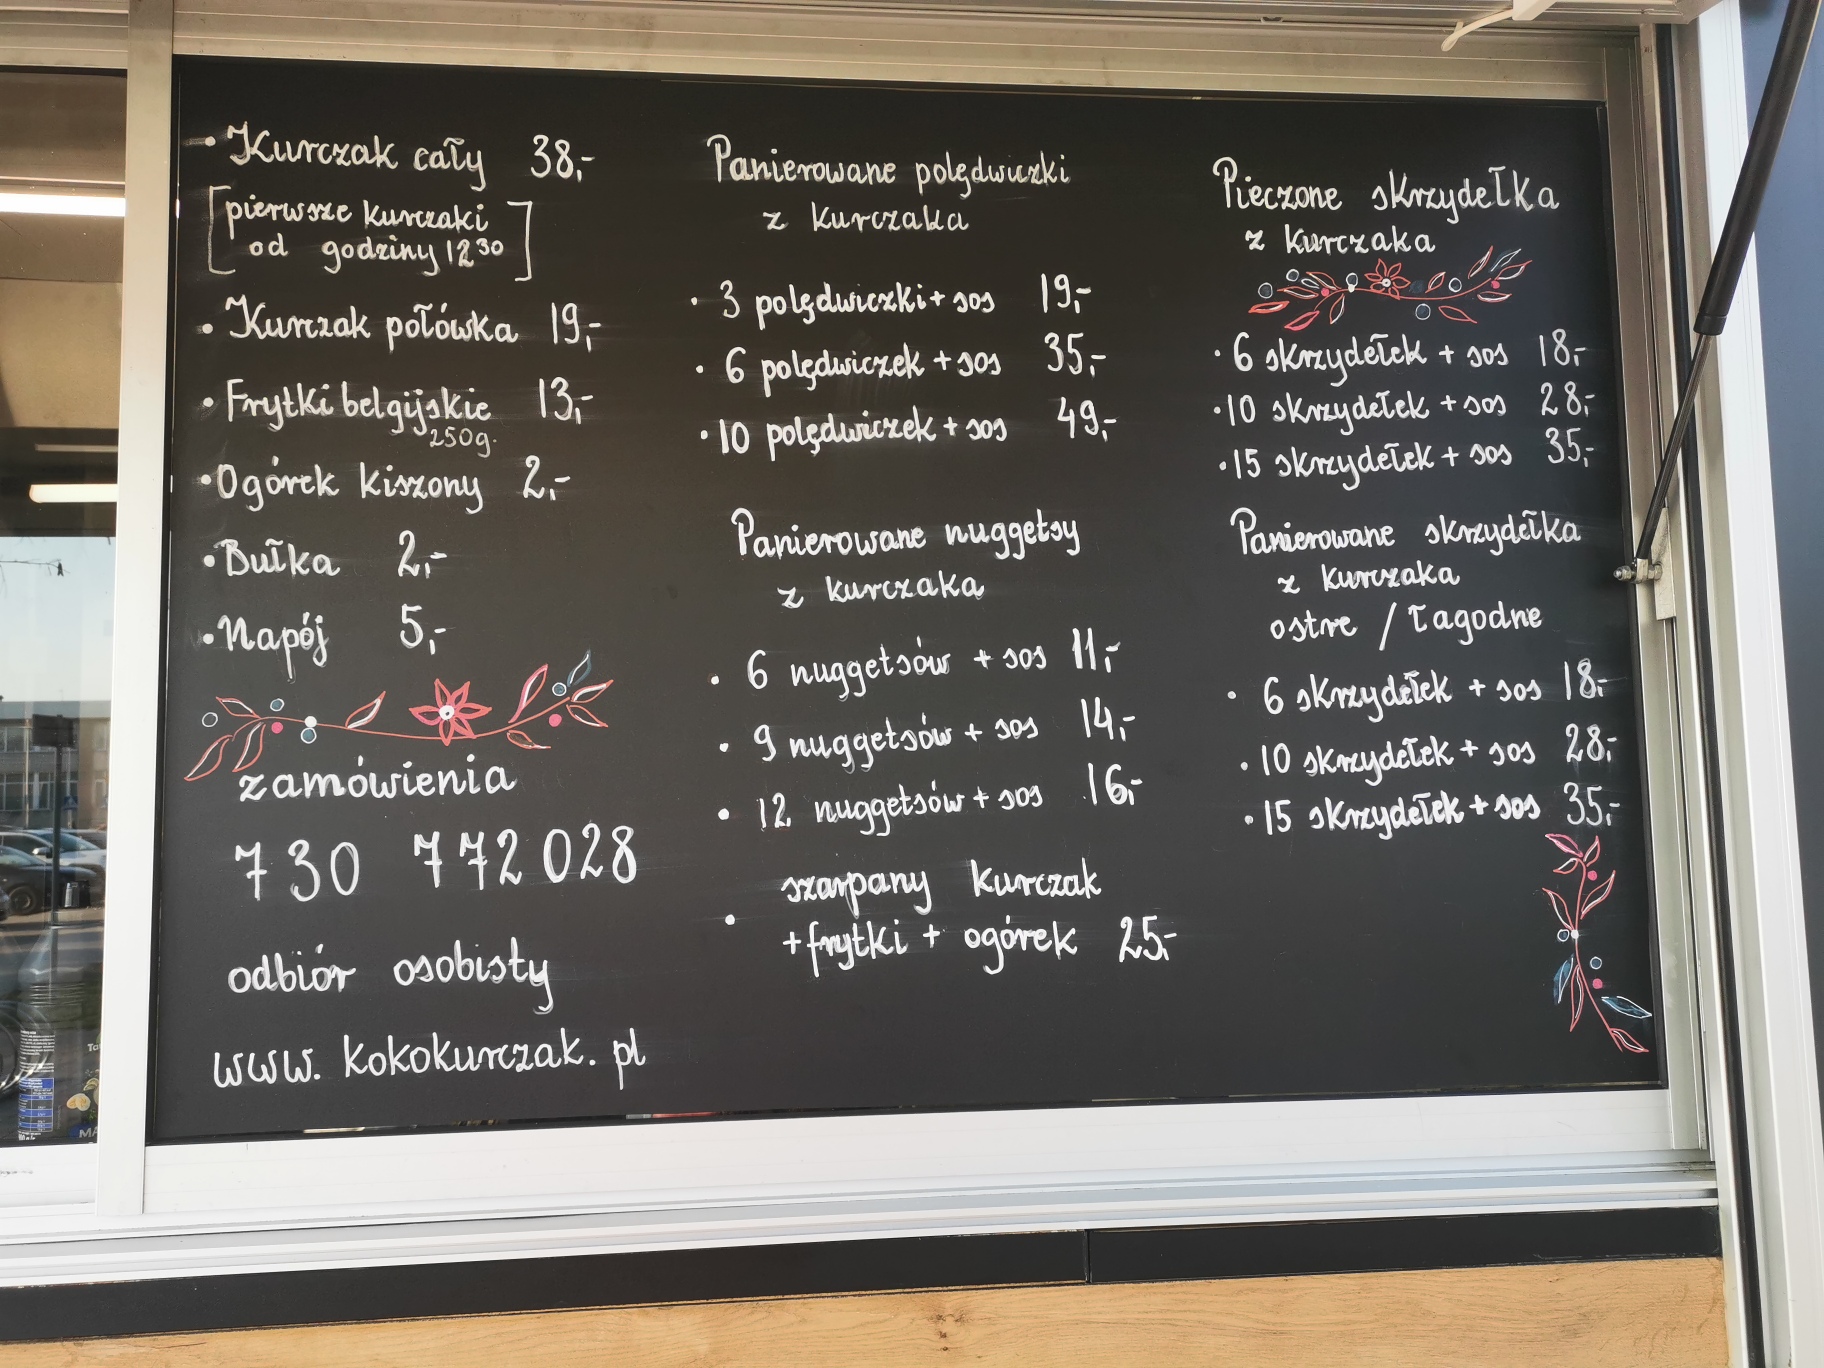 • Kurczak cały 38,-
[pierwsze kurczaki
od godziny 12 30]
• Kurczak połówka 19,-
• Frytki belgijskie 13,-
250g.
• Ogórek kiszony 2,-
• Bułka 2,-
• Napój 5,-
zamówienia
730 772 028
odbiór osobisty
www.kokokurczak.pl
Panierowane polędwiczki
z kurczaka
• 3 polędwiczki + sos 19,-
• 6 polędwiczek + sos 35,-
• 10 polędwiczek + sos 49,-
Panierowane nuggetsy
z kurczaka
• 6 nuggetsów + sos 11,-
• 9 nuggetsów + sos 14,-
• 12 nuggetsów + sos 16,-
• szarpany kurczak
+ frytki + ogórek 25,-
Pieczone skrzydełka
z kurczaka
• 6 skrzydełek + sos 18,-
• 10 skrzydełek + sos 28,-
• 15 skrzydełek + sos 35,-
Panierowane skrzydełka
z kurczaka
ostre / łagodne
• 6 skrzydełek + sos 18,-
• 10 skrzydełek + sos 28,-
• 15 skrzydełek + sos 35,-